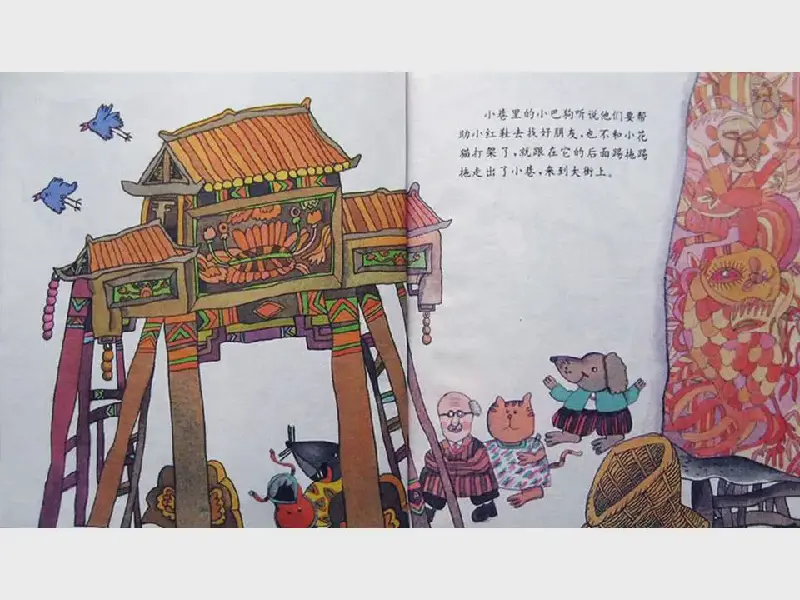 小巷里的小巴狗听说他们要帮
助小红鞋去找好朋友，也不和小花
猫打架了，就跟在它的后面踢拖踢
拖走出了小巷，来到大街上。